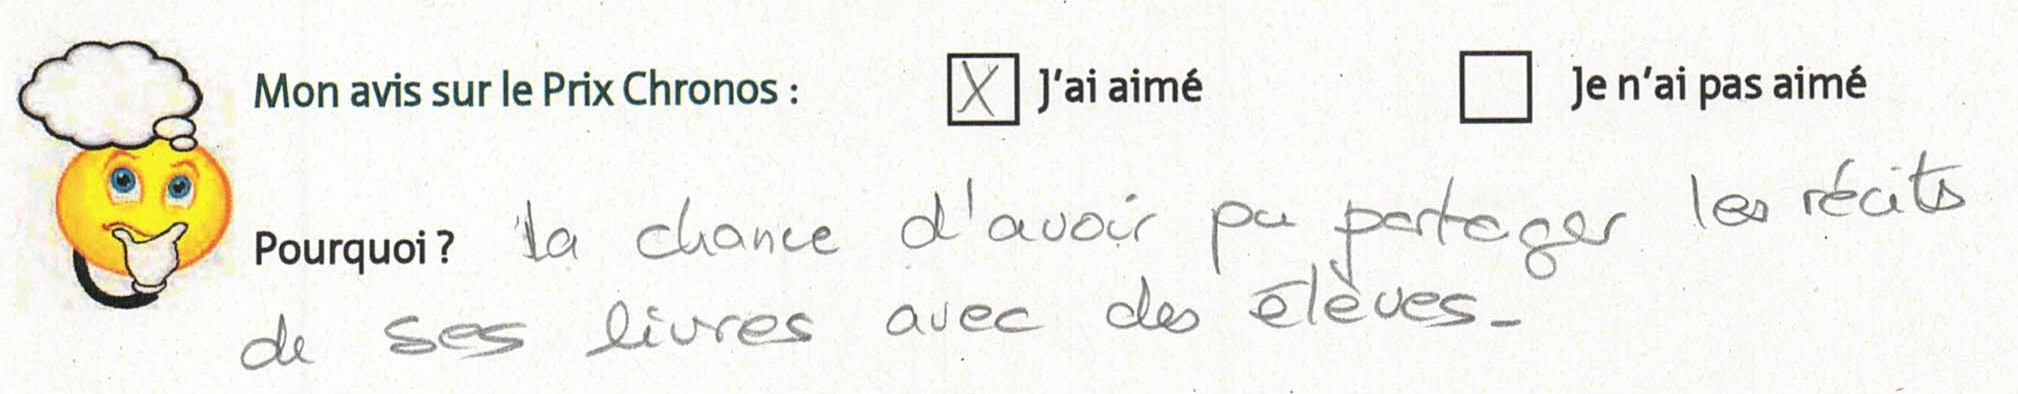 Mon avis sur le Prix Chronos : X J'ai aimé Je n'ai pas aimé
Pourquoi ? la chance d'avoir pu partager les récits
de ses livres avec des élèves.